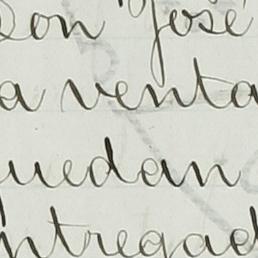 eon "José
a venta
uedan
ntregad